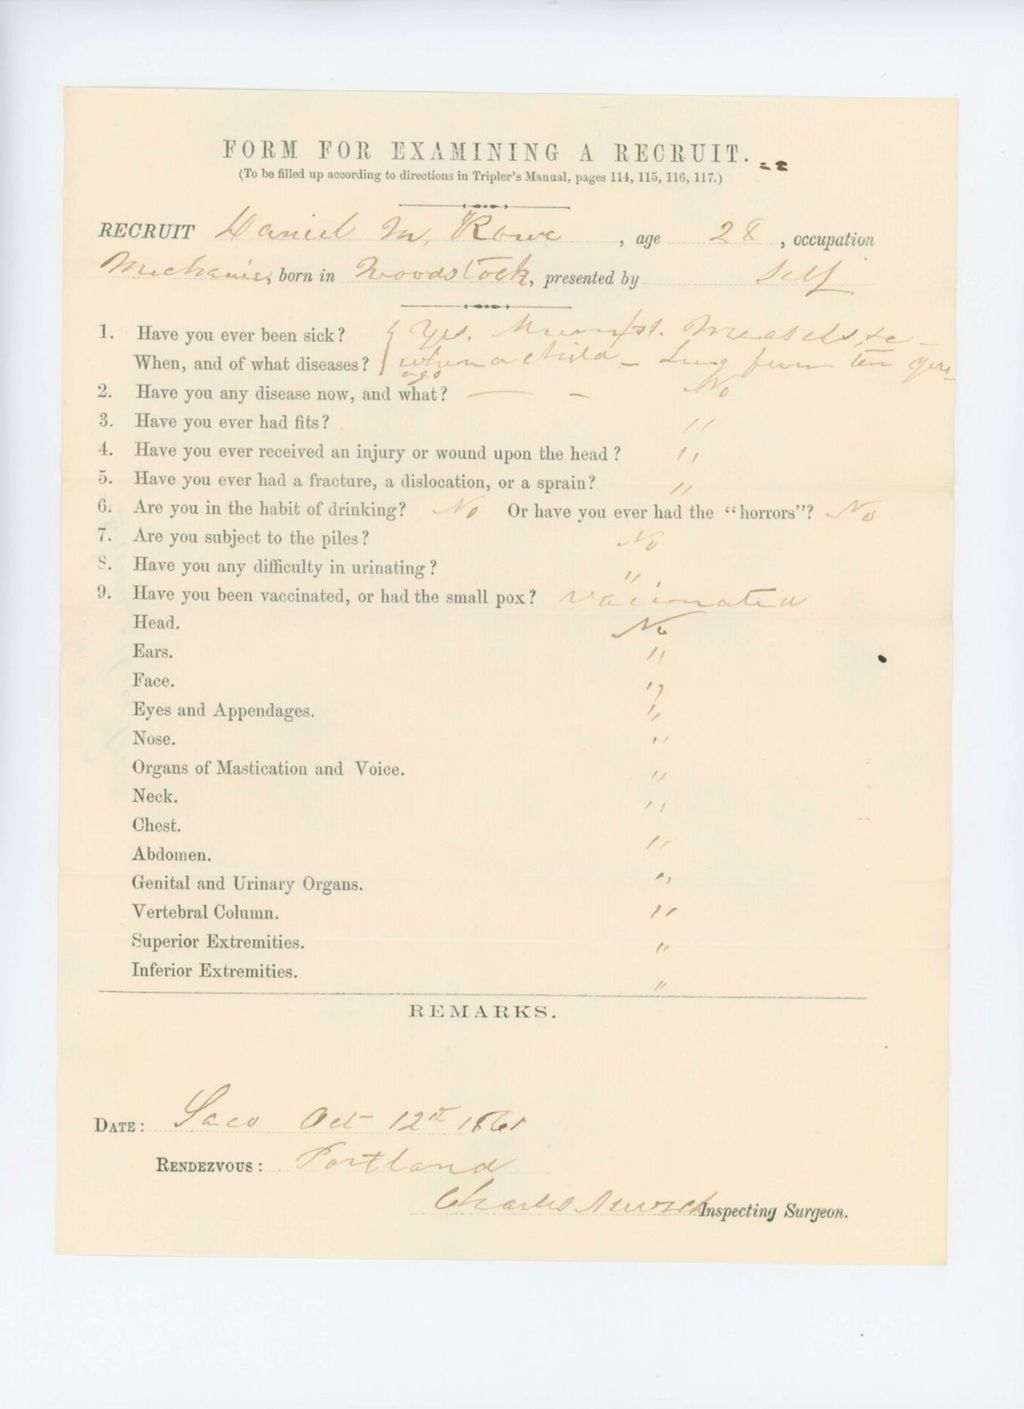 FORM FOR EXAMINING A RECRUIT.
(To be filled up according to directions in Tripler's Manual, pages 114, 115, 116, 117.)
RECRUIT Daniel M. Rowe , age 28 , occupation
Mechanic, born in Woodstock, presented by Self
1. Have you ever been sick? { Yes. Mumps. Measels, &c
When, and of what diseases? when a child – Lung fever ten years
ago
2. Have you any disease now, and what? — - No
3. Have you ever had fits? "
4. Have you ever received an injury or wound upon the head? "
5. Have you ever had a fracture, a dislocation, or a sprain? "
6. Are you in the habit of drinking? No Or have you ever had the "horrors"? No
7. Are you subject to the piles? No
8. Have you any difficulty in urinating? "
9. Have you been vaccinated, or had the small pox? Vaccinated
Head. No
Ears. "
Face. "
Eyes and Appendages. "
Nose. "
Organs of Mastication and Voice. "
Neck. "
Chest.
Abdomen. "
Genital and Urinary Organs. "
Vertebral Column. "
Superior Extremities. "
Inferior Extremities. "
REMARKS.
DATE: Saco Oct 12th 1861
RENDEZVOUS: Portland
Charles Inspecting Surgeon.